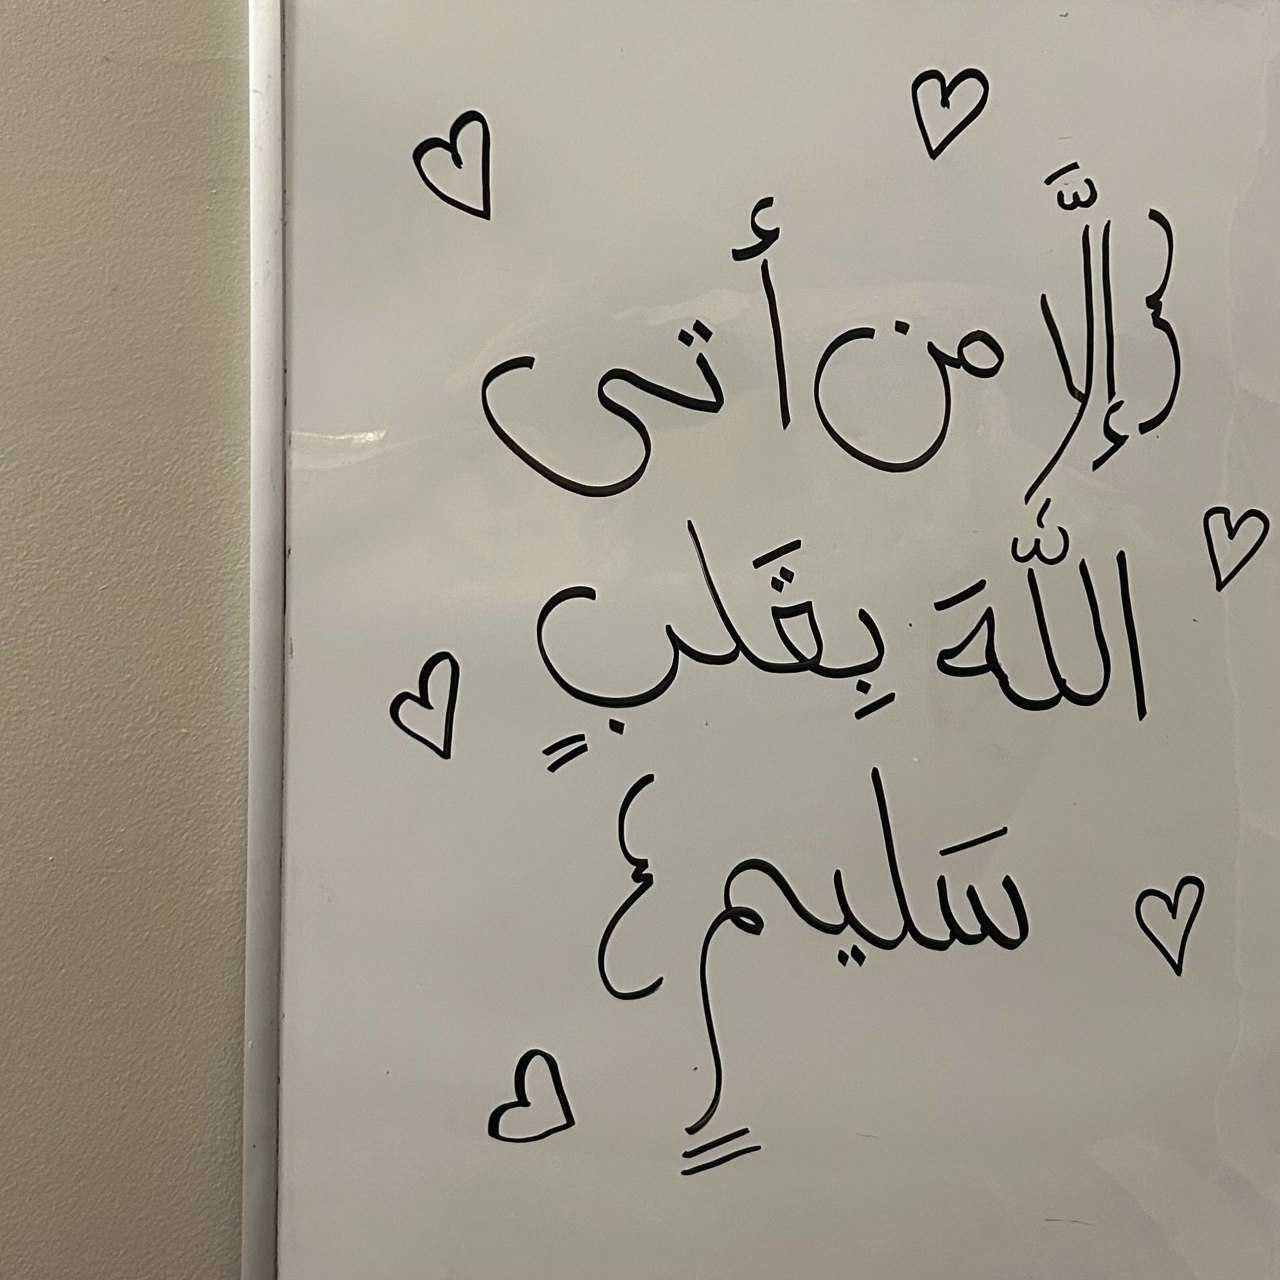 {إلَّا من أتى
اللَّهَ بِقَلبٍ
سَليمٍ}